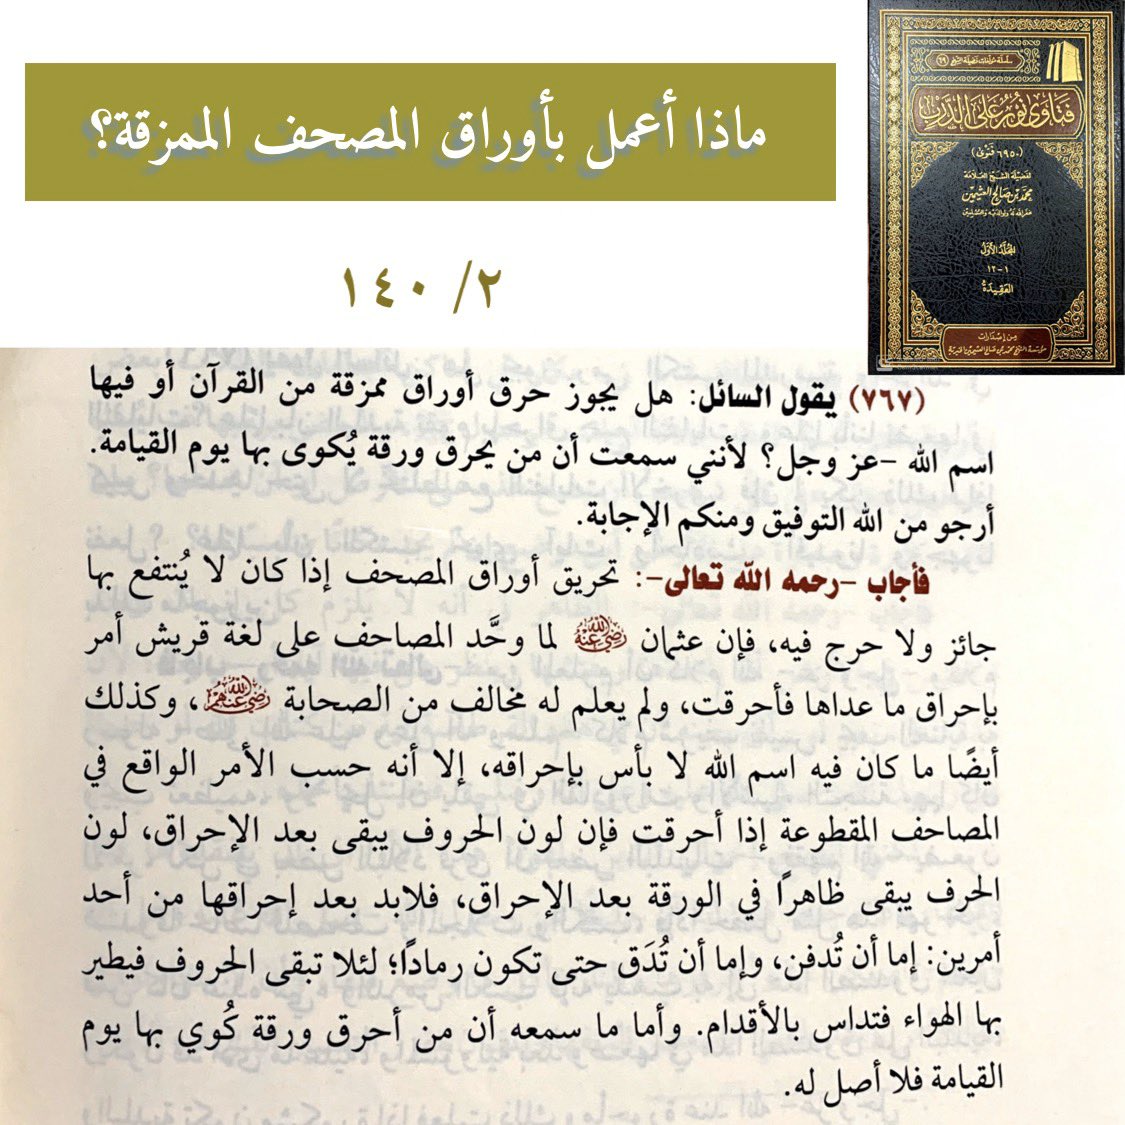 ماذا أعمل بأوراق المصحف الممزقة؟
سلسلة مؤلفات فضيلة الشيخ (٦٩)
فتاوى نور على الدرب
(٦٩٥٠ فتوى)
لفضيلة الشيخ العلامة
محمد بن صالح العثيمين
غفر الله له ولوالديه وللمسلمين
المجلد الأول
١-١٢
العقيدة
من إصدارات
مؤسسة الشيخ محمد بن صالح العثيمين الخيرية
٢/ ١٤٠
(٧٦٧) يقول السائل: هل يجوز حرق أوراق ممزقة من القرآن أو فيها
اسم الله -عز وجل؟ لأنني سمعت أن من يحرق ورقة يُكوى بها يوم القيامة.
أرجو من الله التوفيق ومنكم الإجابة.
فأجاب -رحمه الله تعالى-: تحريق أوراق المصحف إذا كان لا يُنتفع بها
جائز ولا حرج فيه، فإن عثمان رضي الله عنه لما وحَّد المصاحف على لغة قريش أمر
بإحراق ما عداها فأحرقت، ولم يعلم له مخالف من الصحابة رضي الله عنهم، وكذلك
أيضًا ما كان فيه اسم الله لا بأس بإحراقه، إلا أنه حسب الأمر الواقع في
المصاحف المقطوعة إذا أحرقت فإن لون الحروف يبقى بعد الإحراق، لون
الحرف يبقى ظاهرًا في الورقة بعد الإحراق، فلابد بعد إحراقها من أحد
أمرين: إما أن تُدفن، وإما أن تُدَق حتى تكون رمادًا؛ لئلا تبقى الحروف فيطير
بها الهواء فتداس بالأقدام. وأما ما سمعه أن من أحرق ورقة كُوي بها يوم
القيامة فلا أصل له.